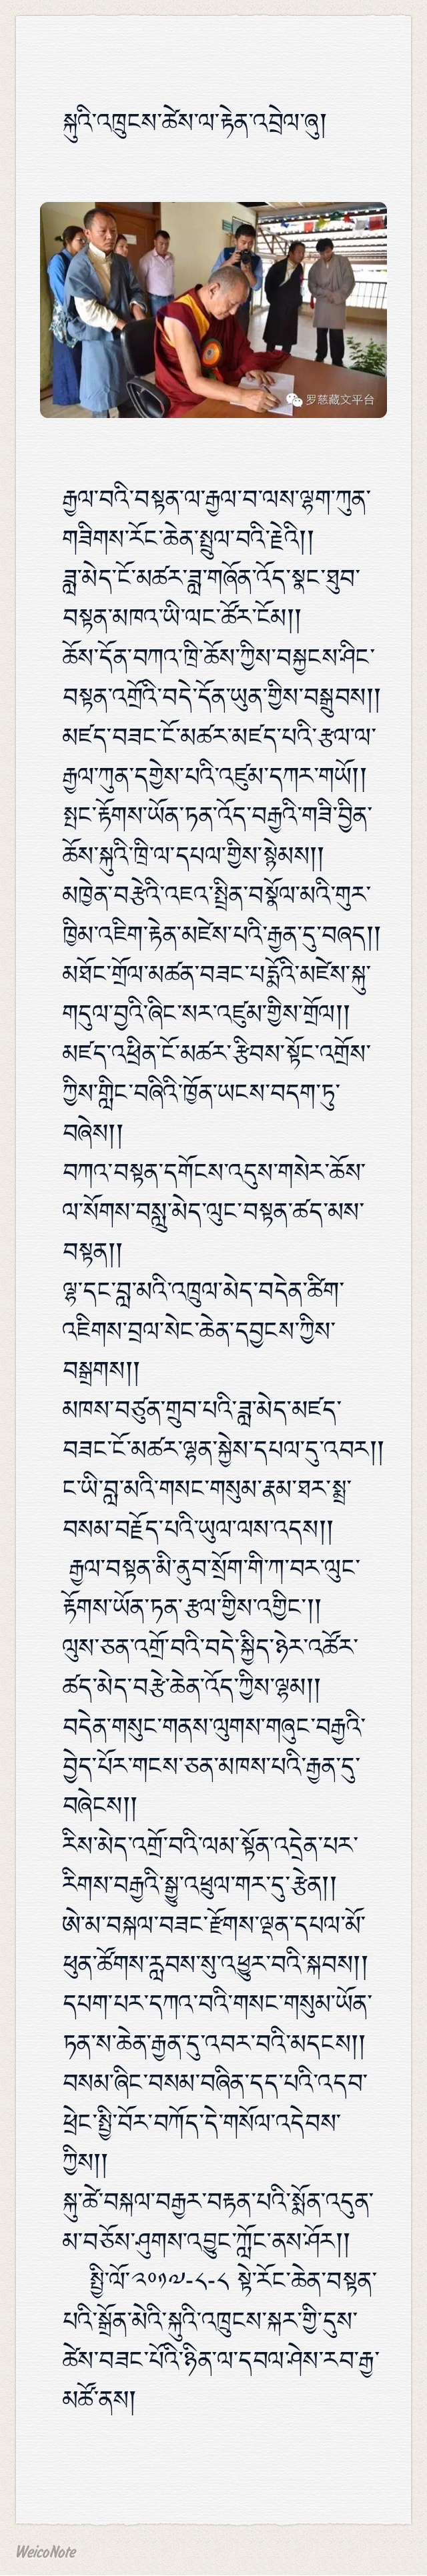 སྐུའི་འཁྲུངས་ཚེས་ལ་རྟེན་འབྲེལ་ཞུ།
罗慈藏文平台
རྒྱལ་བའི་བསྟན་ལ་རྒྱལ་བ་ལས་ལྷག་ཀུན་
གཟིགས་རོང་ཆེན་སྤྲུལ་བའི་རྗེའི།།
ཟླ་མེད་ངོ་མཚར་ཟླ་གཞོན་འོད་སྣང་ཐུབ་
བསྟན་མཁའ་ཡི་ལང་ཚོར་ངོམ།།
ཆོས་དོན་བཀའ་ཁྲི་ཆོས་ཀྱིས་བསྐྱངས་ཤིང་
བསྟན་འགྲོའི་བདེ་དོན་ཡུན་གྱིས་བསྒྲུབས།།
མཛད་བཟང་ངོ་མཚར་མཛད་པའི་རྩལ་ལ་
རྒྱལ་ཀུན་དགྱེས་པའི་འཛུམ་དཀར་གཡོ།།
སྤང་རྟོགས་ཡོན་ཏན་འོད་བརྒྱའི་གཟི་བྱིན་
ཆོས་སྐུའི་ཁྲི་ལ་དཔལ་གྱིས་སྙེམས།།
མཁྱེན་བརྩེའི་འཇའ་སྤྲིན་བསྣོལ་མའི་གུར་
ཁྱིམ་འཇིག་རྟེན་མཛེས་པའི་རྒྱན་དུ་བཞད།།
མཐོང་གྲོལ་མཚན་བཟང་པདྨོའི་མཛེས་སྐུ་
གདུལ་བྱའི་ཞིང་སར་འཛུམ་གྱིས་གྲོལ།།
མཛད་འཕྲིན་ངོ་མཚར་རྩིབས་སྟོང་འགྲོས་
ཀྱིས་གླིང་བཞིའི་ཁྱོན་ཡངས་བདག་ཏུ་
བཞེས།།
བཀའ་བསྟན་དགོངས་འདུས་གསེར་ཆོས་
ལ་སོགས་བསླུ་མེད་ལུང་བསྟན་ཚད་མས་
བསྟན།།
ལྷ་དང་བླ་མའི་འཁྲུལ་མེད་བདེན་ཚིག་
འཇིགས་བྲལ་སེང་ཆེན་དབྱངས་ཀྱིས་
བསྒྲགས།།
མཁས་བཙུན་གྲུབ་པའི་ཟླ་མེད་མཛད་
བཟང་ངོ་མཚར་ལྷན་སྐྱེས་དཔལ་དུ་འབར།།
ང་ཡི་བླ་མའི་གསང་གསུམ་རྣམ་ཐར་སྨྲ་
བསམ་བརྗོད་པའི་ཡུལ་ལས་འདས།།
རྒྱལ་བསྟན་མི་ནུབ་སྲོག་གི་ཀ་བར་ལུང་
རྟོགས་ཡོན་ཏན་རྩལ་གྱིས་འགྱིང་།།
ལུས་ཅན་འགྲོ་བའི་བདེ་སྐྱིད་ཉེར་འཚོར་
ཚད་མེད་བརྩེ་ཆེན་འོད་ཀྱིས་ལྷམ།།
བདེན་གསུང་གནས་ལུགས་གཞུང་བརྒྱའི་
བྱེད་པོར་གངས་ཅན་མཁས་པའི་རྒྱན་དུ་
བཞེངས།།
རིས་མེད་འགྲོ་བའི་ལམ་སྟོན་འདྲེན་པར་
རིགས་བརྒྱའི་སྒྱུ་འཕྲུལ་གར་དུ་རྩེན།།
ཨེ་མ་བསྐལ་བཟང་རྫོགས་ལྡན་དཔལ་མོ་
ཕུན་ཚོགས་རླབས་སུ་འཕྱུར་བའི་སྐབས།།
དཔག་པར་དཀའ་བའི་གསང་གསུམ་ཡོན་
ཏན་ས་ཆེན་རྒྱན་དུ་འབར་བའི་མདངས།།
བསམ་ཞིང་བསམ་བཞིན་དད་པའི་འདབ་
ཕྲེང་སྤྱི་བོར་བཀོད་དེ་གསོལ་འདེབས་
ཀྱིས།།
སྐུ་ཚེ་བསྐལ་བརྒྱར་བརྟན་པའི་སྨོན་འདུན་
མ་བཅོས་ཤུགས་འབྱུང་ཀློང་ནས་ཤོར།།
སྤྱི་ལོ་༢༠༡༧-༨-༨ སྟེ་རོང་ཆེན་བསྟན་
པའི་སྒྲོན་མེའི་སྐུའི་འཁྲུངས་སྐར་གྱི་དུས་
ཚེས་བཟང་པོའི་ཉིན་ལ་དབལ་ཤེས་རབ་རྒྱ་
མཚོ་ནས།
WeicoNote